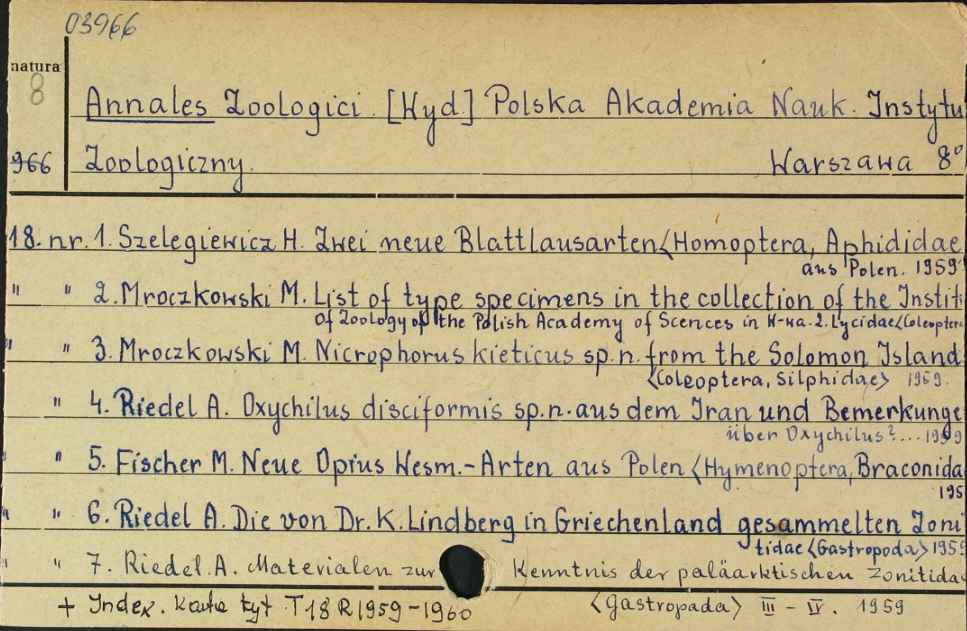 03966
natura
8
Annales Zoologici. [Wyd] Polska Akademia Nauk. Instytu
966 Zoologiczny. Warszawa 8°
18. nr. 1. Szelegiewicz H. Zwei neue Blattlausarten <Homoptera, Aphididae
aus Polen. 1959
" " 2. Mroczkowski M. List of type specimens in the collection of the Instit
of Zoology of the Polish Academy of Scences in W-wa. 2. Lycidae <Coleoptera
" " 3. Mroczkowski M. Nicrophorus kieticus sp.n. from the Solomon Island
<Coleoptera, Silphidae> 1959.
" 4. Riedel A. Oxychilus disciformis sp.n. aus dem Iran und Bemerkunge
über Oxychilus?... 1959
" " 5. Fischer M. Neue Opius Wesm.-Arten aus Polen <Hymenoptera, Braconida
195
" " 6. Riedel A. Die von Dr. K. Lindberg in Griechenland gesammelten Zoni
tidae <Gastropoda> 1959
" " 7. Riedel. A. Materialen zur Kenntnis der paläarktischen Zonitida
+ Index. Karta tyt. T 18 R 1959-1960 <Gastropada> III - IV. 1959